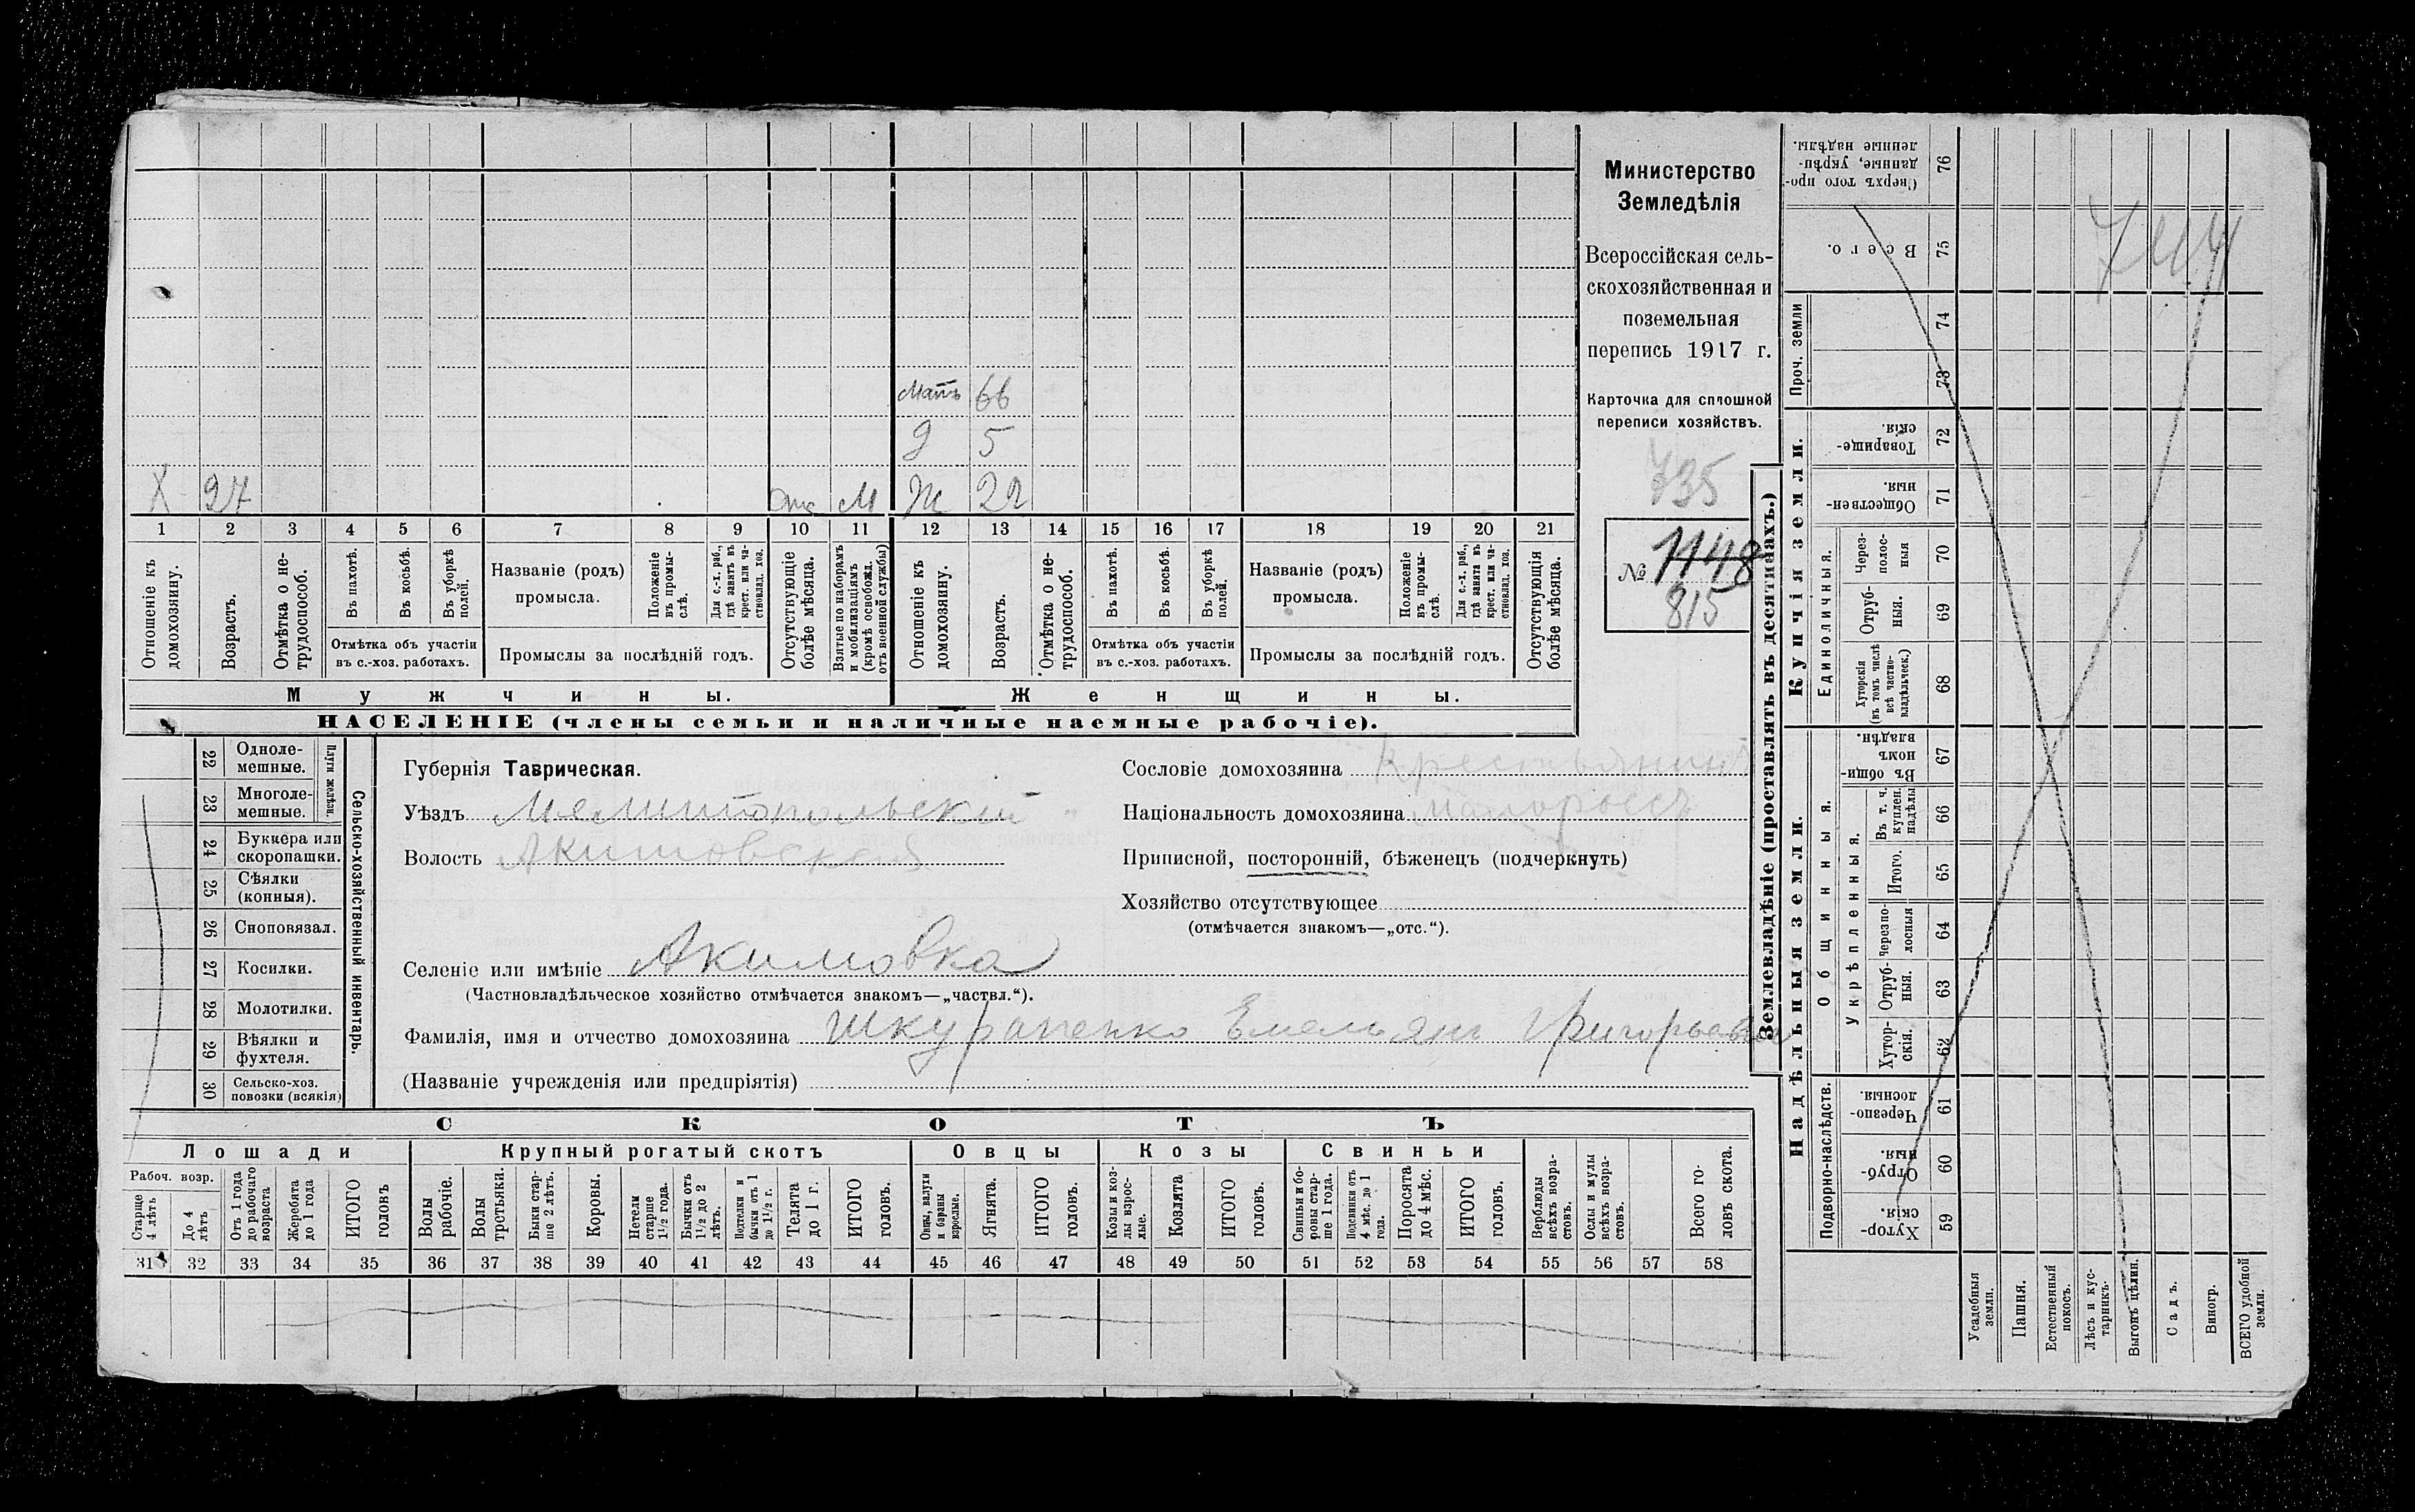 Министерство
Земледѣлія
Всероссійская сель-
скохозяйственная и
поземельная
перепись 1917 г.
Карточка для сплошной
переписи хозяйствъ.
735
№ 1148
815
Мать 66
д 5
Х 27 отс М Ж 22
1 2 3 4 5 6 7 8 9 10 11 12 13 14 15 16 17 18 19 20 21
Отношеніе къ домохозяину.
Возрастъ.
Отмѣтка о не-трудоспособ.
Въ пахотѣ.
Въ косьбѣ.
Въ уборкѣ полей.
Отмѣтка объ участіи
въ с.-хоз. работахъ.
Названіе (родъ)
промысла.
Положеніе въ промы-слѣ.
Для с.-х. раб., гдѣ занятъ въ крест. или ча-стновлад. хоз.
Промыслы за послѣдній годъ.
Отсутствующіе болѣе мѣсяца.
Взятые по наборамъ и мобилизаціямъ (кромѣ освобожд. отъ военной службы)
Отношеніе къ домохозяину.
Возрастъ.
Отмѣтка о не-трудоспособ.
Въ пахотѣ.
Въ косьбѣ.
Въ уборкѣ полей.
Отмѣтка объ участіи
въ с.-хоз. работахъ.
Названіе (родъ)
промысла.
Положеніе въ промы-слѣ.
Для с.-х. раб., гдѣ занята въ крест. или ча-стновлад. хоз.
Промыслы за послѣдній годъ.
Отсутствующія болѣе мѣсяца.
Мужчины. Женщины.
НАСЕЛЕНІЕ (члены семьи и наличные наемные рабочіе).
22 Одноле-мешные.
23 Многоле-мешные.
Плуги желѣзн.
24 Буккера или скоропашки.
25 Сѣялки (конныя).
26 Сноповязал.
27 Косилки.
28 Молотилки.
29 Вѣялки и фухтеля.
30 Сельско-хоз. повозки (всякія)
Сельско-хозяйственный инвентарь.
Губернія Таврическая.
Уѣздъ Мелитопольский
Волость Акимовская
Сословіе домохозяина Крестьянинъ
Національность домохозяина Малороссъ
Приписной, посторонній, бѣженецъ (подчеркнуть)
Хозяйство отсутствующее
(отмѣчается знакомъ—„отс.“).
Селеніе или имѣніе Акимовка
(Частновладѣльческое хозяйство отмѣчается знакомъ—„частвл.“).
Фамилія, имя и отчество домохозяина Шкурапенко Емельян Григорьевич
(Названіе учрежденія или предпріятія)
СКОТЪ
Лошади Крупный рогатый скотъ Овцы Козы Свиньи
Рабоч. возр.
Старше 4 лѣтъ
До 4 лѣтъ
Отъ 1 года до рабочаго возраста
Жеребята до 1 года
ИТОГО головъ
Волы рабочіе.
Волы третьяки.
Быки стар-ше 2 лѣтъ.
Коровы.
Нетели старше 1½ года.
Бычки отъ 1½ до 2 лѣтъ.
Подтелки и бычки отъ 1 до 1½ г.
Телята до 1 г.
ИТОГО головъ.
Овцы, валухи и бараны взрослые.
Ягнята.
ИТОГО головъ.
Козы и коз-лы взрос-лые.
Козлята
ИТОГО головъ.
Свиньи и бо-ровы стар-ше 1 года.
Подсвинки отъ 4 мѣс. до 1 года.
Поросята до 4 мѣс.
ИТОГО головъ.
Верблюды всѣхъ возра-стовъ.
Ослы и мулы всѣхъ возра-стовъ.
Всего го-ловъ скота.
31 32 33 34 35 36 37 38 39 40 41 42 43 44 45 46 47 48 49 50 51 52 53 54 55 56 57 58
Землевладѣніе (проставлять въ десятинахъ.)
Надѣльныя земли. Купчія земли. Проч. земли
Подворно-наслѣдств.
Общинныя.
Укрѣпленныя.
Единоличныя.
Сверхъ того про-данные, укрѣп-ленные надѣлы. 76
Всего. 75
74
73
Товарище-скія. 72
Обществен-ныя. 71
Через-полос-ныя 70
Отруб-ныя. 69
Хуторскія (въ томъ числѣ всѣ частно-владѣльческ.) 68
Въ общи-номъ владѣн. 67
Въ т. ч. куплен. надѣлы 66
Итого. 65
Черезпо-лосныя 64
Отруб-ныя. 63
Хутор-скія. 62
Черезпо-лосныя. 61
Отруб-ныя. 60
Хутор-скія. 59
Усадебныя земли.
Пашня.
Естественный покосъ.
Лѣсъ и кус-тарникъ.
Выгонъ цѣлин.
Садъ.
Виногр.
ВСЕГО удобной земли.